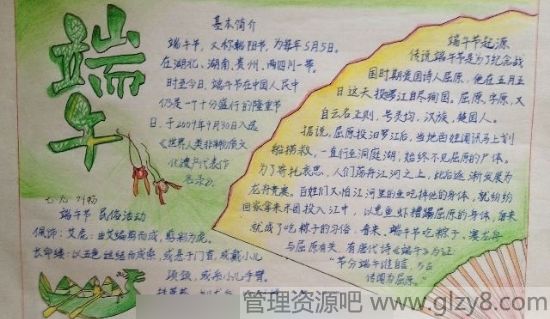 端午
基本简介
端午节，又称端阳节，为每年5月5日。
在湖北、湖南、贵州、四川一带。
时至今日，端午节在中国人民中
仍是一个十分盛行的隆重节
日，于2009年9月30日入选
《世界人类非物质文
化遗产代表作
名录》。
端午节 民俗活动
佩饰：艾虎：由艾编剪而成，或剪彩为虎。
长命缕：以五色丝结而成索，或悬于门首，或戴小儿
项颈，或系小儿手臂。
端午节起源
传说端午节是为了纪念战
国时期爱国诗人屈原，他在五月五
日这天投汨罗江自尽殉国。屈原，字原，又
自云名正则，号灵均，汉族，楚国人。
据说，屈原投汨罗江后，当地百姓闻讯马上划
船捞救，一直行至洞庭湖，始终不见屈原的尸体。
为了寄托哀思，人们荡舟江河之上，此后逐渐发展为
龙舟竞赛。百姓们又怕江河里的鱼吃掉他的身体，就纷纷
回家拿来米团投入江中，以免鱼虾糟蹋屈原的身体，后来
就成了吃粽子的习俗。看来，端午节吃粽子、赛龙舟
与屈原有关，有唐代诗《端午》为证：
"节分端午谁自言，万古
传闻为屈原。"
管理资源吧 www.glzy8.com